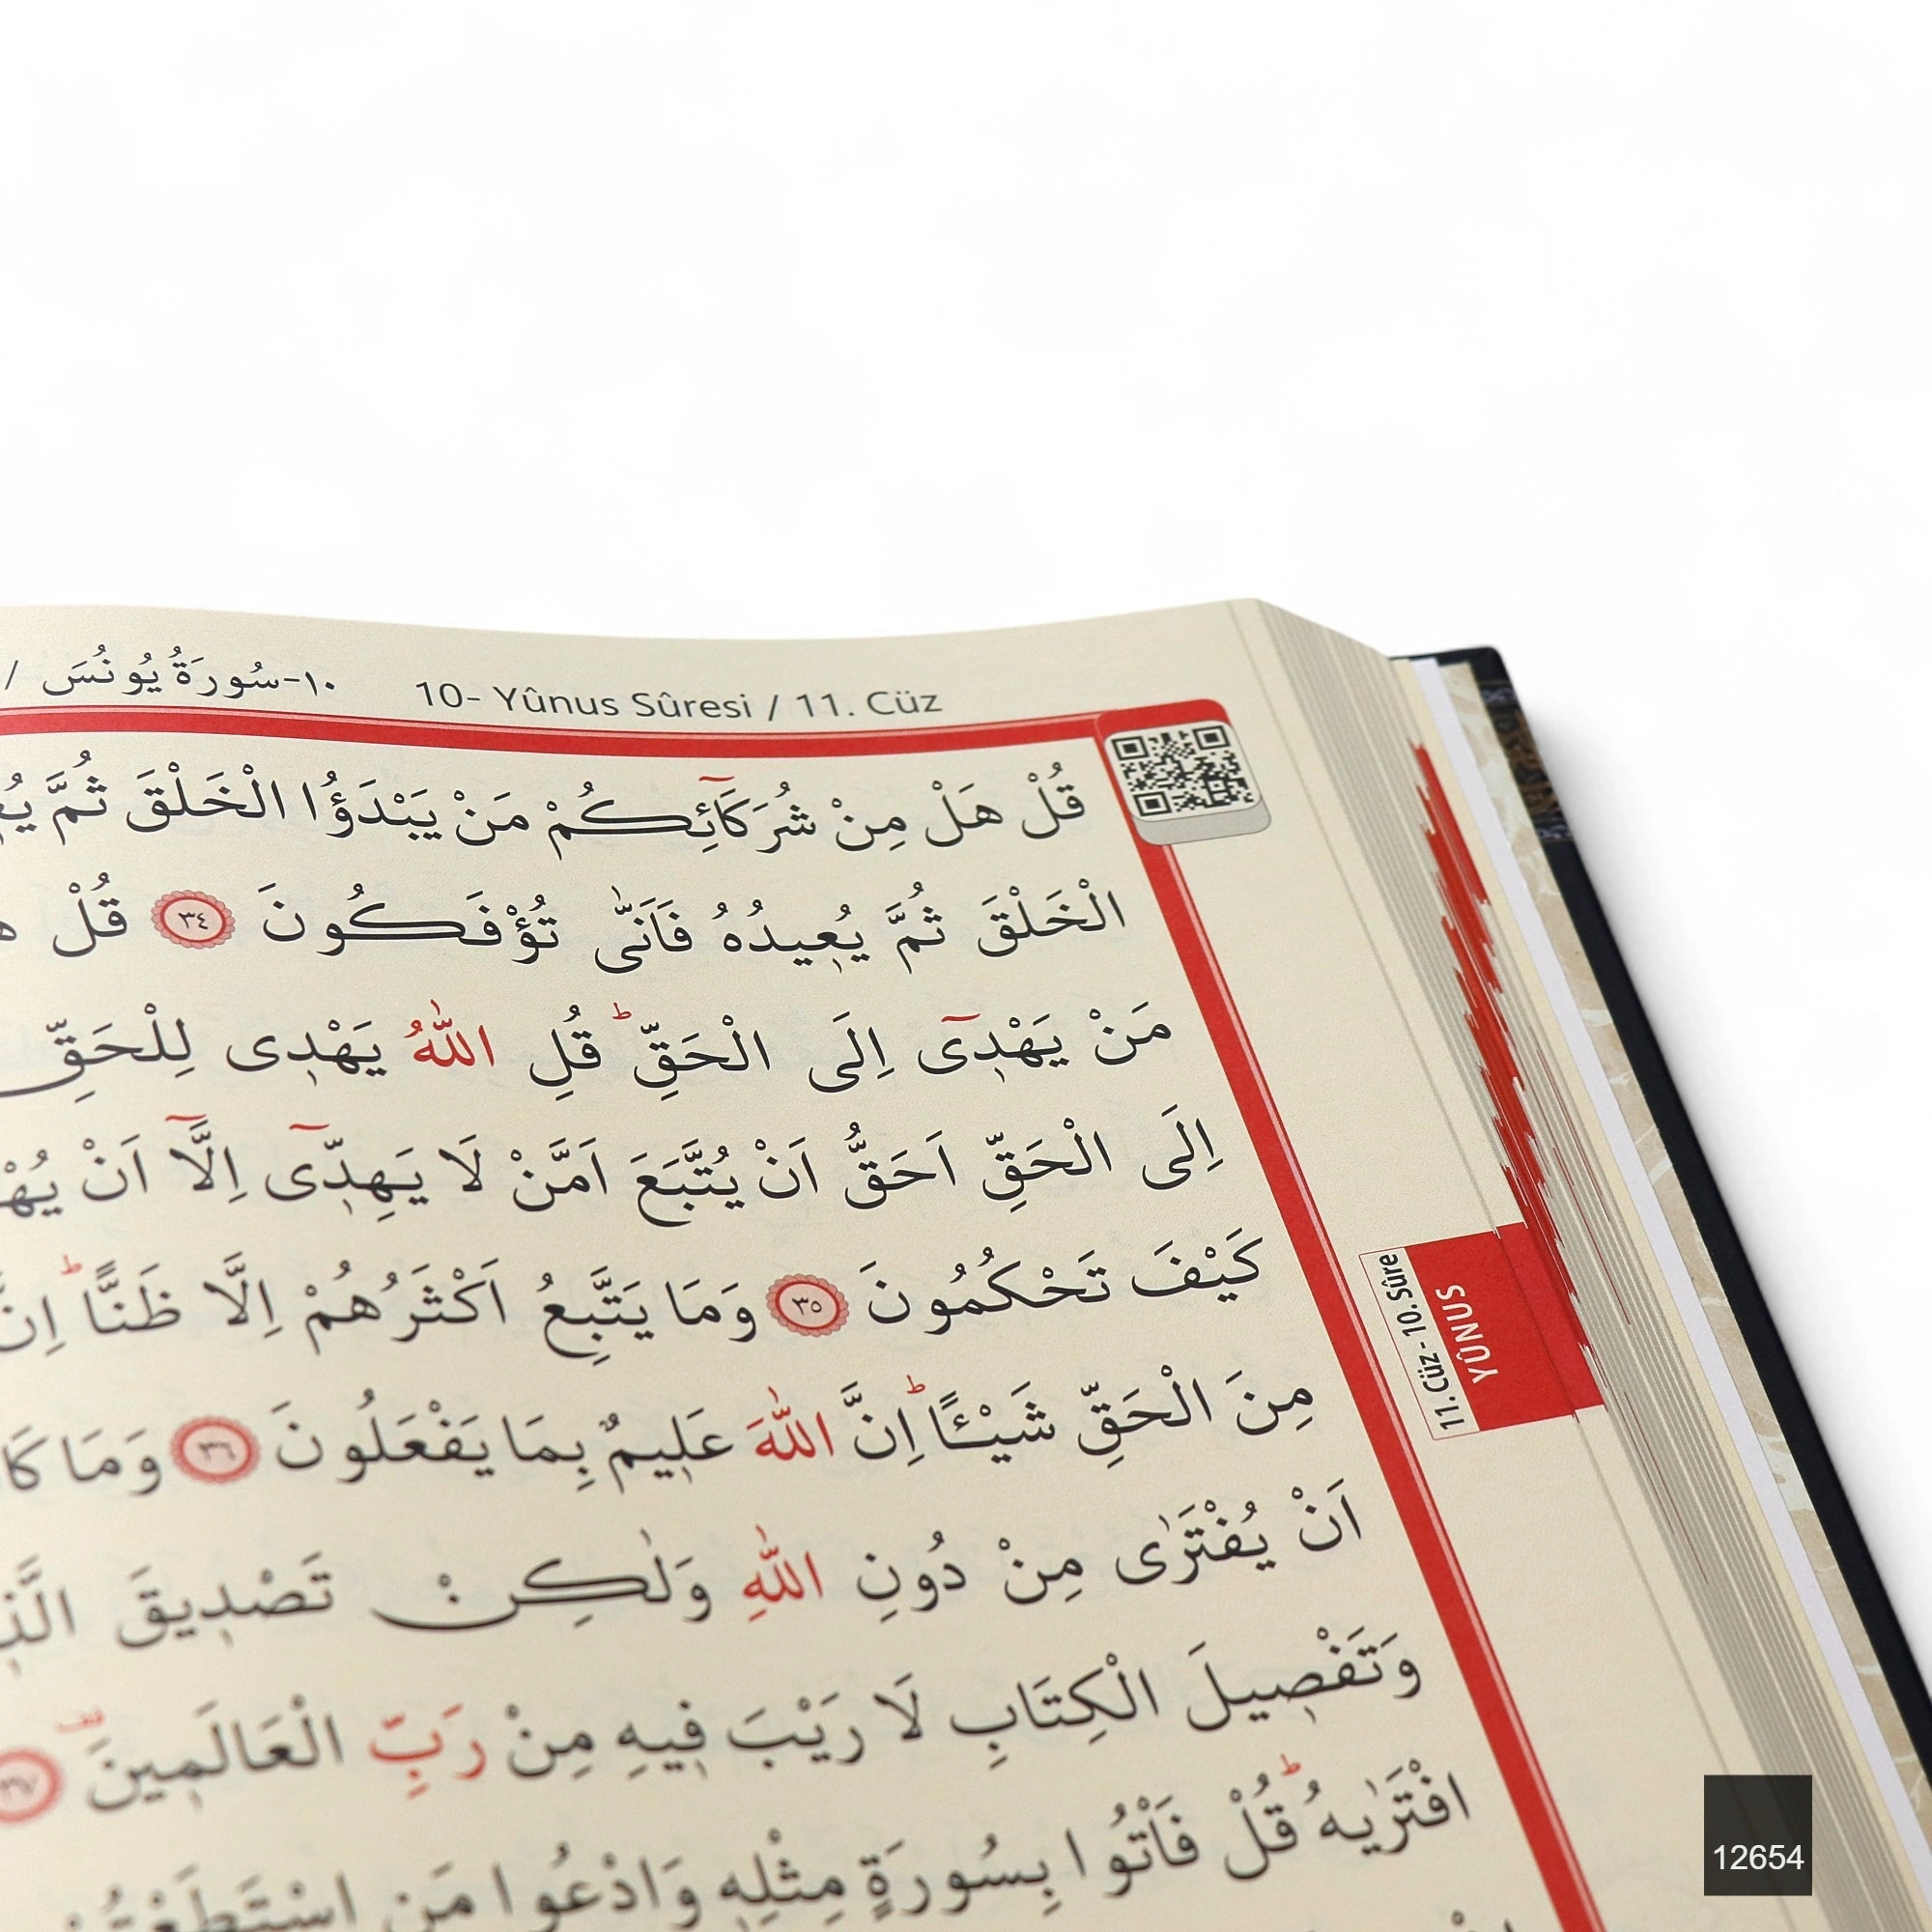 ١٠-سُورَةُ يُونُسَ /
10- Yûnus Sûresi / 11. Cüz
قُلْ هَلْ مِنْ شُرَكَٓائِكُمْ مَنْ يَبْدَؤُا الْخَلْقَ ثُمَّ
الْخَلْقَ ثُمَّ يُع۪يدُهُ فَاَنّٰى تُؤْفَكُونَ ٣٤ قُلْ
مَنْ يَهْد۪ٓى اِلَى الْحَقِّۜ قُلِ اللّٰهُ يَهْد۪ى لِلْحَقِّ
اِلَى الْحَقِّ اَحَقُّ اَنْ يُتَّبَعَ اَمَّنْ لَا يَهِدّ۪ٓى اِلَّٓا اَنْ
كَيْفَ تَحْكُمُونَ ٣٥ وَمَا يَتَّبِعُ اَكْثَرُهُمْ اِلَّا ظَنًّاۜ
مِنَ الْحَقِّ شَيْـًٔاۜ اِنَّ اللّٰهَ عَل۪يمٌ بِمَا يَفْعَلُونَ ٣٦ وَمَا
اَنْ يُفْتَرٰى مِنْ دُونِ اللّٰهِ وَلٰكِنْ تَصْد۪يقَ
وَتَفْص۪يلَ الْكِتَابِ لَا رَيْبَ ف۪يهِ مِنْ رَبِّ الْعَالَم۪ينَ۠ ٣٧
افْتَرٰيهُۜ قُلْ فَأْتُوا بِسُورَةٍ مِثْلِه۪ وَادْعُوا مَنِ اسْتَطَعْتُمْ
11. Cüz - 10. Sûre
YÛNUS
12654